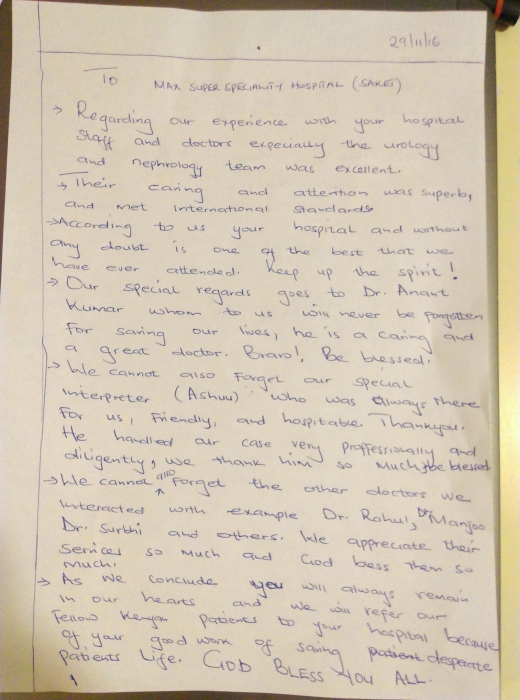 29/11/16
To
MAX SUPER SPECIALITY HOSPITAL (SAKET)
→ Regarding our experience with your hospital
staff and doctors expecially the urology
and nephrology team was excellent.
→ Their caring and attention was superb,
and met International Standards
→ According to us your hospital and without
any doubt is one of the best that we
have ever attended. Keep up the spirit!
→ Our special regards goes to Dr. Anant
Kumar whom to us will never be forgotten
for saving our lives, he is a caring and
a great doctor. Bravo!, Be blessed.
→ We cannot also forget our special
interpreter (Ashuu) who was always there
for us, friendly, and hospitable. Thankyou.
He handled our case very proffessionally and
diligently, we thank him so much, be blessed
→ We cannot also forget the other doctors we
interacted with example Dr. Rahul, Dr Manjoo
Dr. Surbhi and others. We appreciate their
services so much and God bess them so
much.
→ As we conclude you will always remain
in our hearts and we will refer our
fellow Kenyan patients to your hospital because
of your good work of saving patient desperate
patients life. GOD BLESS YOU ALL.